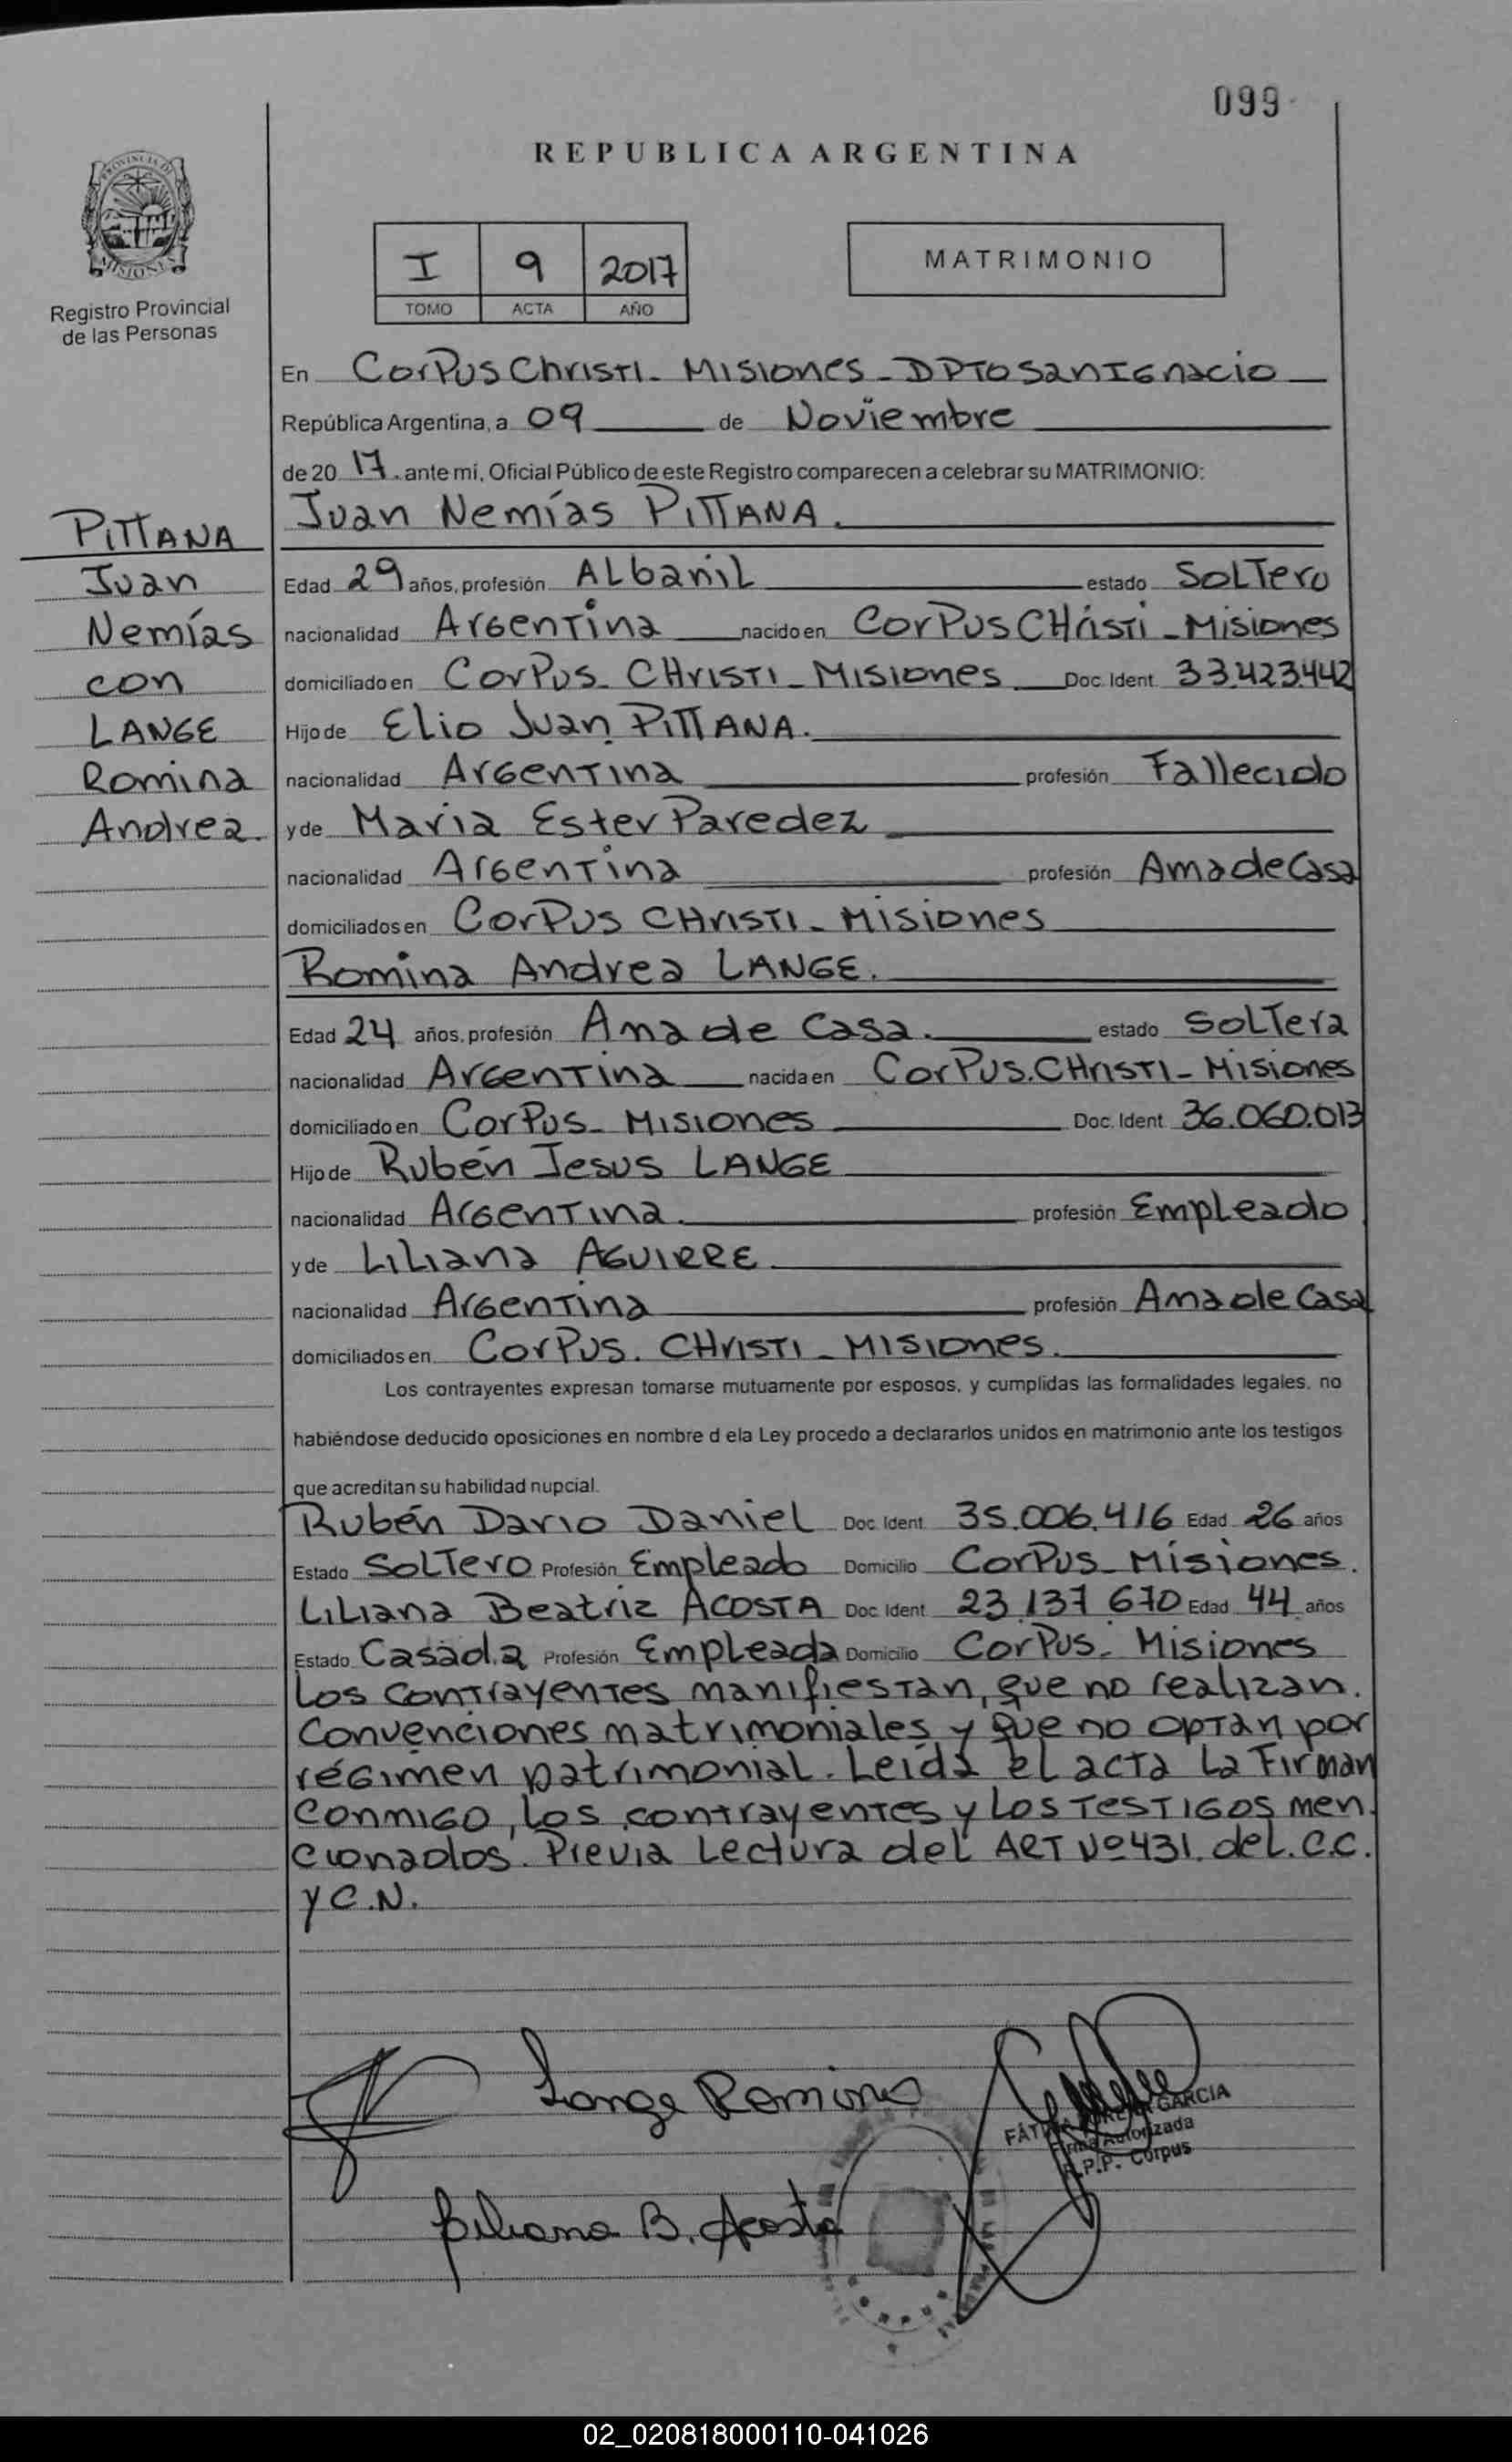 099
REPUBLICA ARGENTINA
PROVINCIA DE
MISIONES
Registro Provincial
de las Personas
I 9 2017
TOMO ACTA AÑO
MATRIMONIO
En CorPus Christi - Misiones - DPTO San Ignacio
República Argentina, a 09 de Noviembre
de 20 17. ante mí, Oficial Público de este Registro comparecen a celebrar su MATRIMONIO:
Juan Nemías PITTANA.
PITTANA
Juan
Nemías
con
LANGE
Romina
Andrea.
Edad 29 años, profesión Albañil estado Soltero
nacionalidad Argentina nacido en Corpus CHristi - Misiones
domiciliado en Corpus - CHristi - Misiones Doc. Ident. 33.423.442
Hijo de Elio Juan PITTANA.
nacionalidad Argentina profesión Fallecido
y de Maria Ester Paredez
nacionalidad Argentina profesión Ama de Casa
domiciliados en Corpus CHristi - Misiones
Romina Andrea LANGE.
Edad 24 años, profesión Ama de Casa. estado Soltera
nacionalidad Argentina nacida en Corpus.CHristi - Misiones
domiciliado en Corpus - Misiones Doc. Ident. 36.060.013
Hijo de Rubén Jesus LANGE
nacionalidad Argentina. profesión Empleado
y de Liliana AGUIRRE
nacionalidad Argentina profesión Ama de Casa
domiciliados en Corpus. CHristi - Misiones.
Los contrayentes expresan tomarse mutuamente por esposos, y cumplidas las formalidades legales, no
habiéndose deducido oposiciones en nombre d ela Ley procedo a declararlos unidos en matrimonio ante los testigos
que acreditan su habilidad nupcial.
Rubén Dario Daniel Doc. Ident. 35.006.416 Edad 26 años
Estado Soltero Profesión Empleado Domicilio Corpus - Misiones.
Liliana Beatriz ACOSTA Doc. Ident. 23.137 670 Edad 44 años
Estado Casada Profesión Empleada Domicilio Corpus - Misiones
Los contrayentes manifiestan, que no realizan.
Convenciones matrimoniales y que no optan por
régimen patrimonial. Leida el acta la Firman
conmigo, los contrayentes y los testigos men.
cionados. Previa Lectura del ART Nº431. del. C.C.
y C.N.
Lange Romina
FÁTIMA GARCIA
Firma Autorizada
R.P.P. Corpus
Liliana B. Acosta
02_020818000110-041026